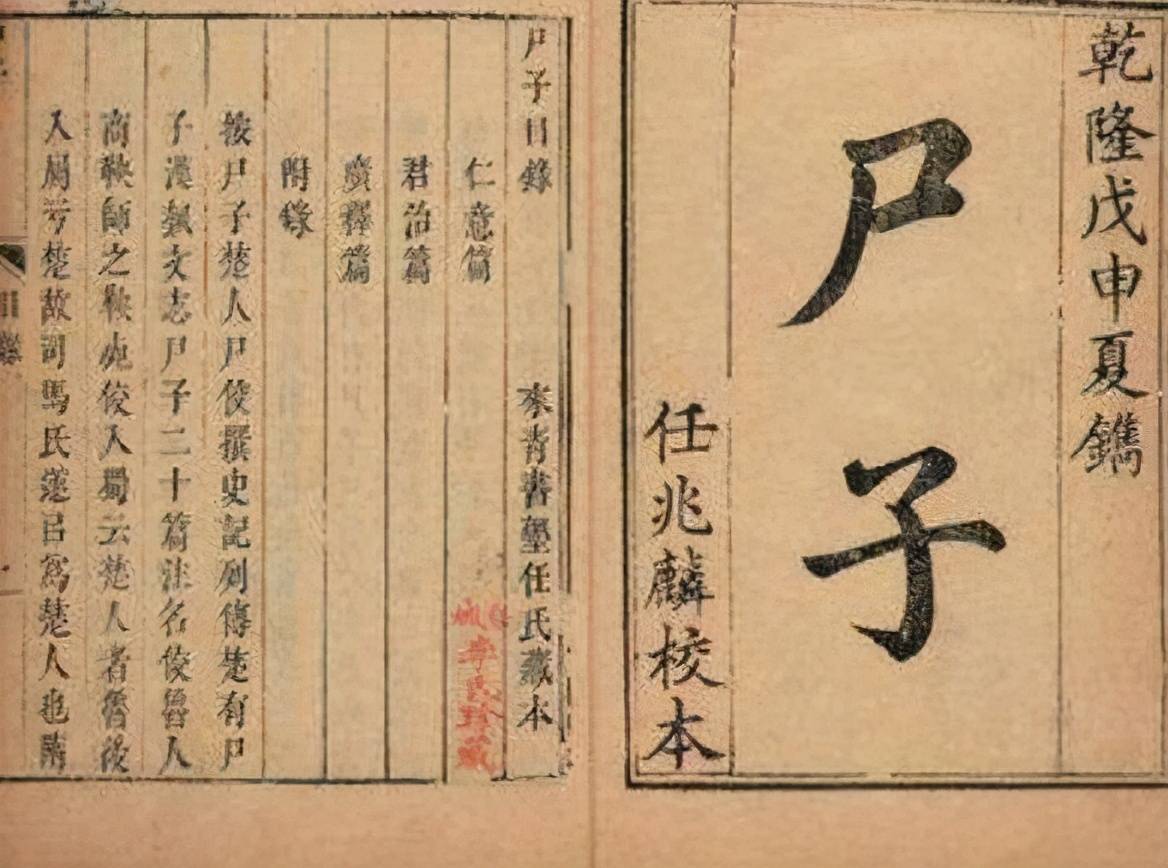 乾隆戊申夏鐫
尸子
任兆麟校本
尸子目錄 本 書 任氏藏本
仁意篇
君治篇
廣釋篇
附錄
按尸子楚人尸佼撰史記列傳楚有尸
子漢執文志尸子二十篇注名佼魯人
商鞅師之鞅死佼入蜀云楚人者魯後
入屬於楚故司馬氏遂曰為楚人也隋
李氏珍藏